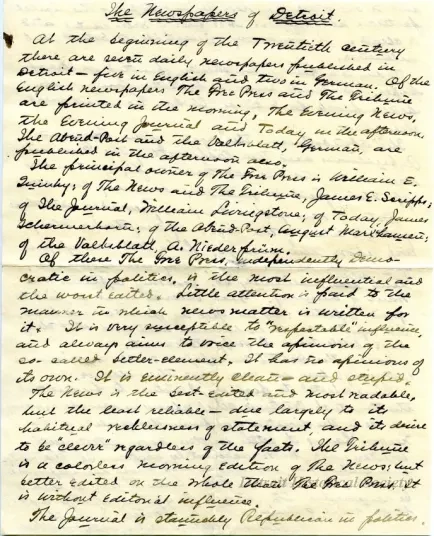 The Newspapers of Detroit.
At the beginning of the Twentieth century
there are seven daily newspapers published in
Detroit – five in English and two in German. Of the
English newspapers The Free Press and The Tribune
are printed in the morning, The Evening News,
the Evening Journal and Today in the afternoon.
The Abend-Post and the Volksblatt, German, are
published in the afternoon also.
The principal owner of the Free Press is William E.
Quinby; of The News and The Tribune, James E. Scripps;
of The Journal, William Livingstone; of Today, James
Schermerhorn; of the Abend-Post, August Marxhausen;
of the Volksblatt, A. Niederpruem.
Of these The Free Press, Independently Demo-
cratic in politics, is the most influential and
the worst edited. Little attention is paid to the
manner in which news matter is written for
it. It is very susceptible to "respectable" influence,
and always aims to voice the opinions of the
so-called better-element. It has no opinions of
its own. It is eminently clean – and stupid.
The News is the best edited and most readable,
but the least reliable – due largely to its
habitual recklessness of statement and its desire
to be "clever" regardless of the facts. The Tribune
is a colorless morning edition of The News; but
better edited on the whole than The Free Press. It
is without editorial influence.
The Journal is staunchly Republican in politics.